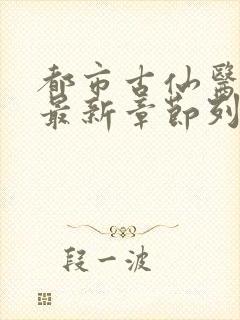 都市古仙醫
最新章節列
段一波